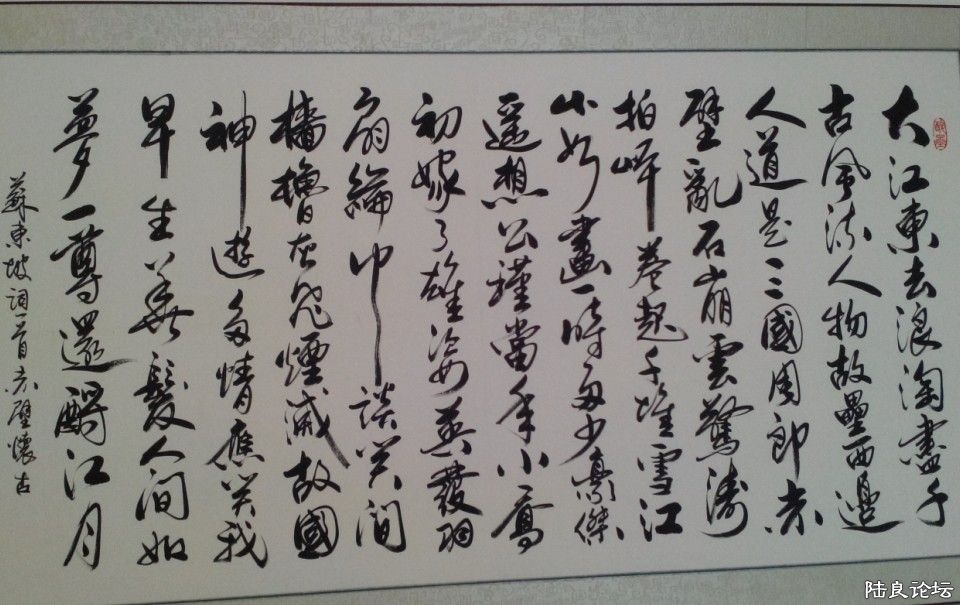 大江東去浪淘盡千
古風流人物故壘西邊
人道是三國周郎赤
壁亂石崩雲驚濤
拍岸卷起千堆雪江
山如畫一時多少豪傑
遥想公瑾當年小喬
初嫁了雄姿英發羽
扇綸巾談笑間
檣櫓灰飛煙滅故國
神遊多情應笑我
早生華髮人間如
夢一尊還酹江月
蘇東坡詞一首赤壁懷古
陆良论坛